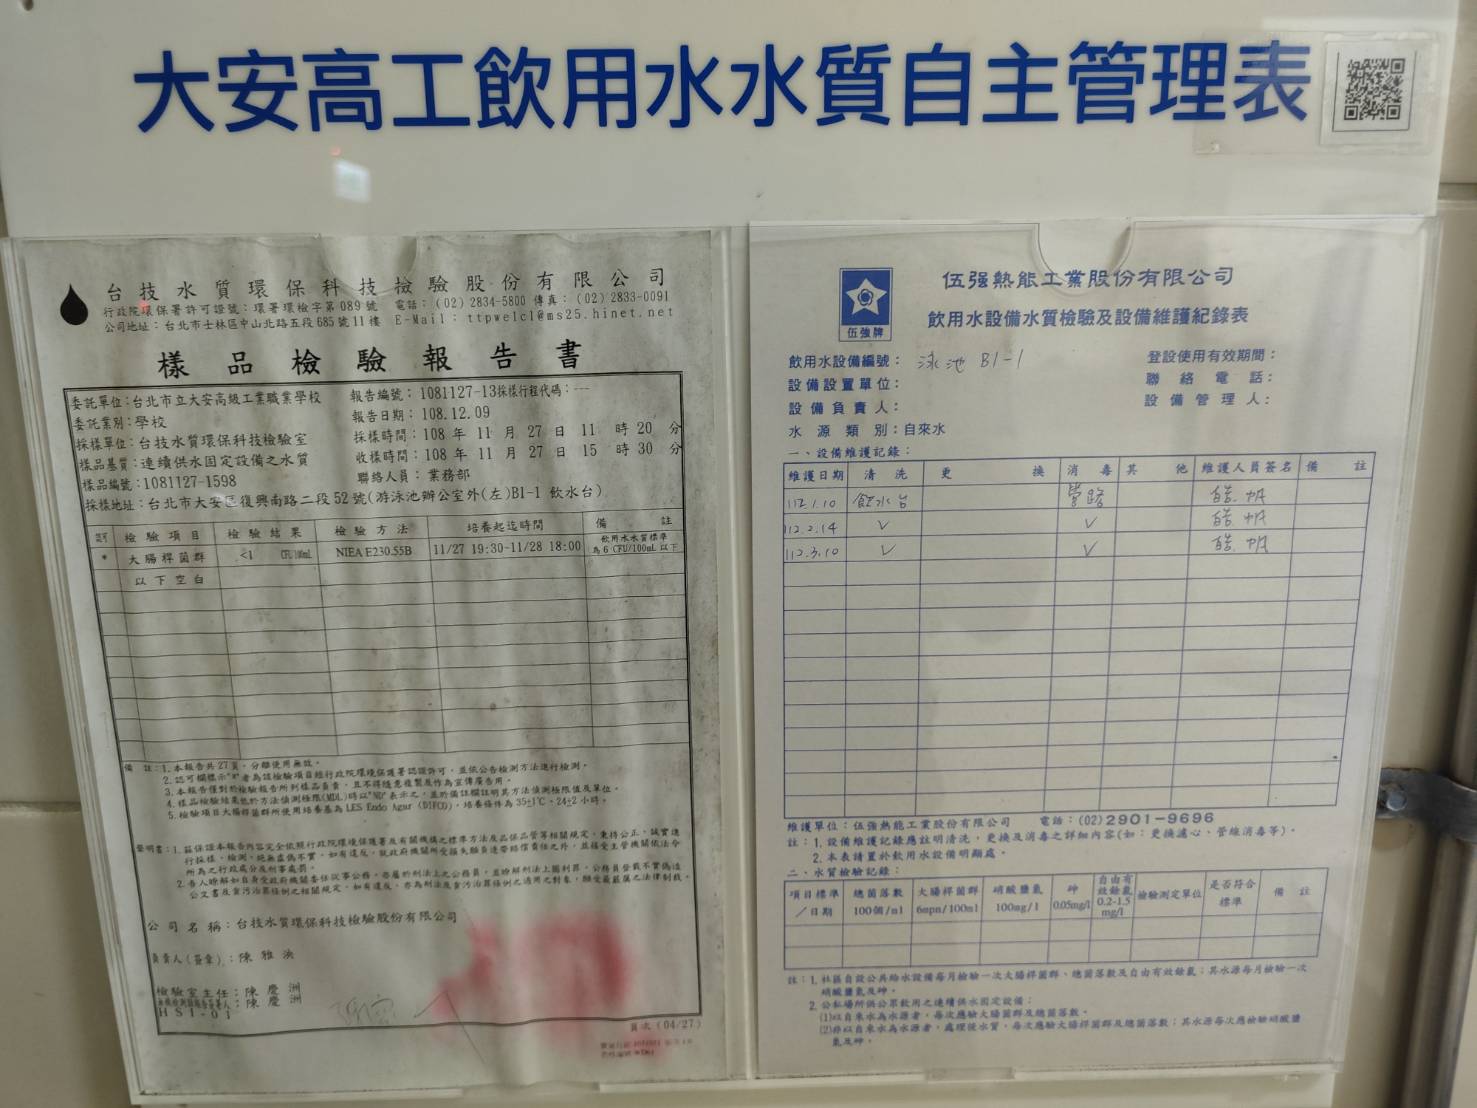 大安高工飲用水水質自主管理表
台技水質環保科技檢驗股份有限公司
行政院環保署許可證號：環署環檢字第089號 電話：(02) 2834-5800 傳真：(02) 2833-0091
公司地址：台北市士林區中山北路五段685號11樓 E-Mail：ttpwelcl@ms25.hinet.net
樣品檢驗報告書
委託單位：台北市立大安高級工業職業學校 報告編號：1081127-13採樣行程代碼：---
委託業別：學校 報告日期：108.12.09
採樣單位：台技水質環保科技檢驗室 採樣時間：108 年 11 月 27 日 11 時 20 分
樣品基質：連續供水固定設備之水質 收樣時間：108 年 11 月 27 日 15 時 30 分
樣品編號：1081127-1598 聯絡人員：業務部
採樣地址：台北市大安區復興南路二段52號(游泳池辦公室外(左)B1-1 飲水台)
認可 檢驗項目 檢驗結果 檢驗方法 培養起迄時間 備註
* 大腸桿菌群 <1 CFU/100mL NIEA E230.55B 11/27 19:30-11/28 18:00 飲用水水質標準為6 CFU/100mL以下
以下空白
備註：1.本報告共27頁，分離使用無效。
2.認可欄標示"*"者為該檢驗項目經行政院環境保護署認證許可，並依公告檢測方法進行檢測。
3.本報告僅對於檢驗報告所列樣品負責，且不得隨意複製及作為宣傳廣告用。
4.樣品檢驗結果低於方法偵測極限(MDL)時以"ND"表示之，並於備註欄註明其方法偵測極限值及單位。
5.檢驗項目大腸桿菌群所使用培養基為LES Endo Agar (DIFCO)，培養條件為35±1℃、24±2小時。
聲明書：1.茲保證本報告內容完全依照行政院環境保護署及有關機構之標準方法及品保品管等相關規定，秉持公正、誠實進
行採樣、檢測。絕無虛偽不實，如有違反，就政府機關所受損失願負連帶賠償責任之外，並接受主管機關依法令
所為之行政處分及刑事處罰。
2.吾人瞭解如自身受政府機關委任從事公務，亦屬於刑法上之公務員，並瞭解刑法上圖利罪、公務員登載不實偽造
公文書及貪污治罪條例之相關規定，如有違反，亦為刑法及貪污治罪條例之適用之對象，願受最嚴厲之法律制裁。
公司名稱：台技水質環保科技檢驗股份有限公司
負責人(簽章)：陳雅洪
檢驗室主任：陳慶洲
陳慶洲
HSI-01
頁次 (04/27)
伍强牌
伍强熱能工業股份有限公司
飲用水設備水質檢驗及設備維護紀錄表
飲用水設備編號：泳池 B1-1 登設使用有效期間：
設備設置單位： 聯絡電話：
設備負責人： 設備管理人：
水源類別：自來水
一、設備維護記錄：
維護日期 清洗 更換 消毒 其他 維護人員簽名 備註
112.1.10 飲水台 管路 皓帆
112.2.14 ✓ ✓ 皓帆
112.3.10 ✓ ✓ 皓帆
維護單位：伍強熱能工業股份有限公司 電話：(02)2901-9696
註：1.設備維護記錄應註明清洗，更換及消毒之詳細內容(如：更換濾心、管線消毒等)。
2.本表請置於飲用水設備明顯處。
二、水質檢驗記錄：
項目標準／日期 總菌落數 100個/ml 大腸桿菌群 6mpn/100ml 硝酸鹽氮 100mg/l 砷 0.05mg/l 自由有效餘氯 0.2-1.5 mg/l 檢驗測定單位 是否符合標準 備註
註：1.社區自設公共給水設備每月檢驗一次大腸桿菌群、總菌落數及自由有效餘氯；其水源每月檢驗一次
硝酸鹽氮及砷。
2.公私場所供公眾飲用之連續供水固定設備：
(1)以自來水為水源者，每次應驗大腸菌群及總菌落數。
(2)非以自來水為水源者，處理後水質，每次應驗大腸桿菌群及總菌落數；其水源每次應檢驗硝酸鹽
氮及砷。